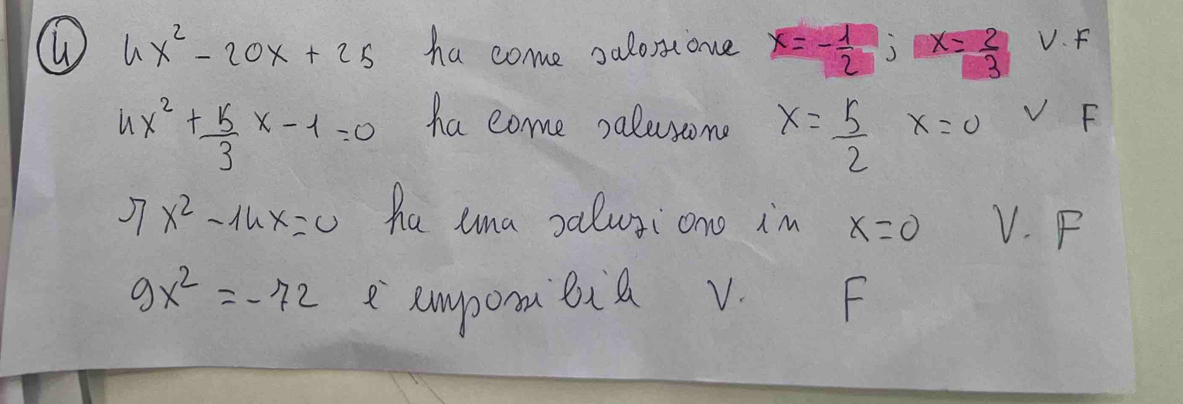 ④ 4x² - 20x + 25 ha come soluzione x = -1/2 ; x = 2/3 V. F
4x² + 5/3 x - 1 = 0 ha come soluzione x = 5/2 x = 0 V F
7x² - 14x = 0 ha una soluzione in x = 0 V. F
9x² = -72 è impossibile V. F